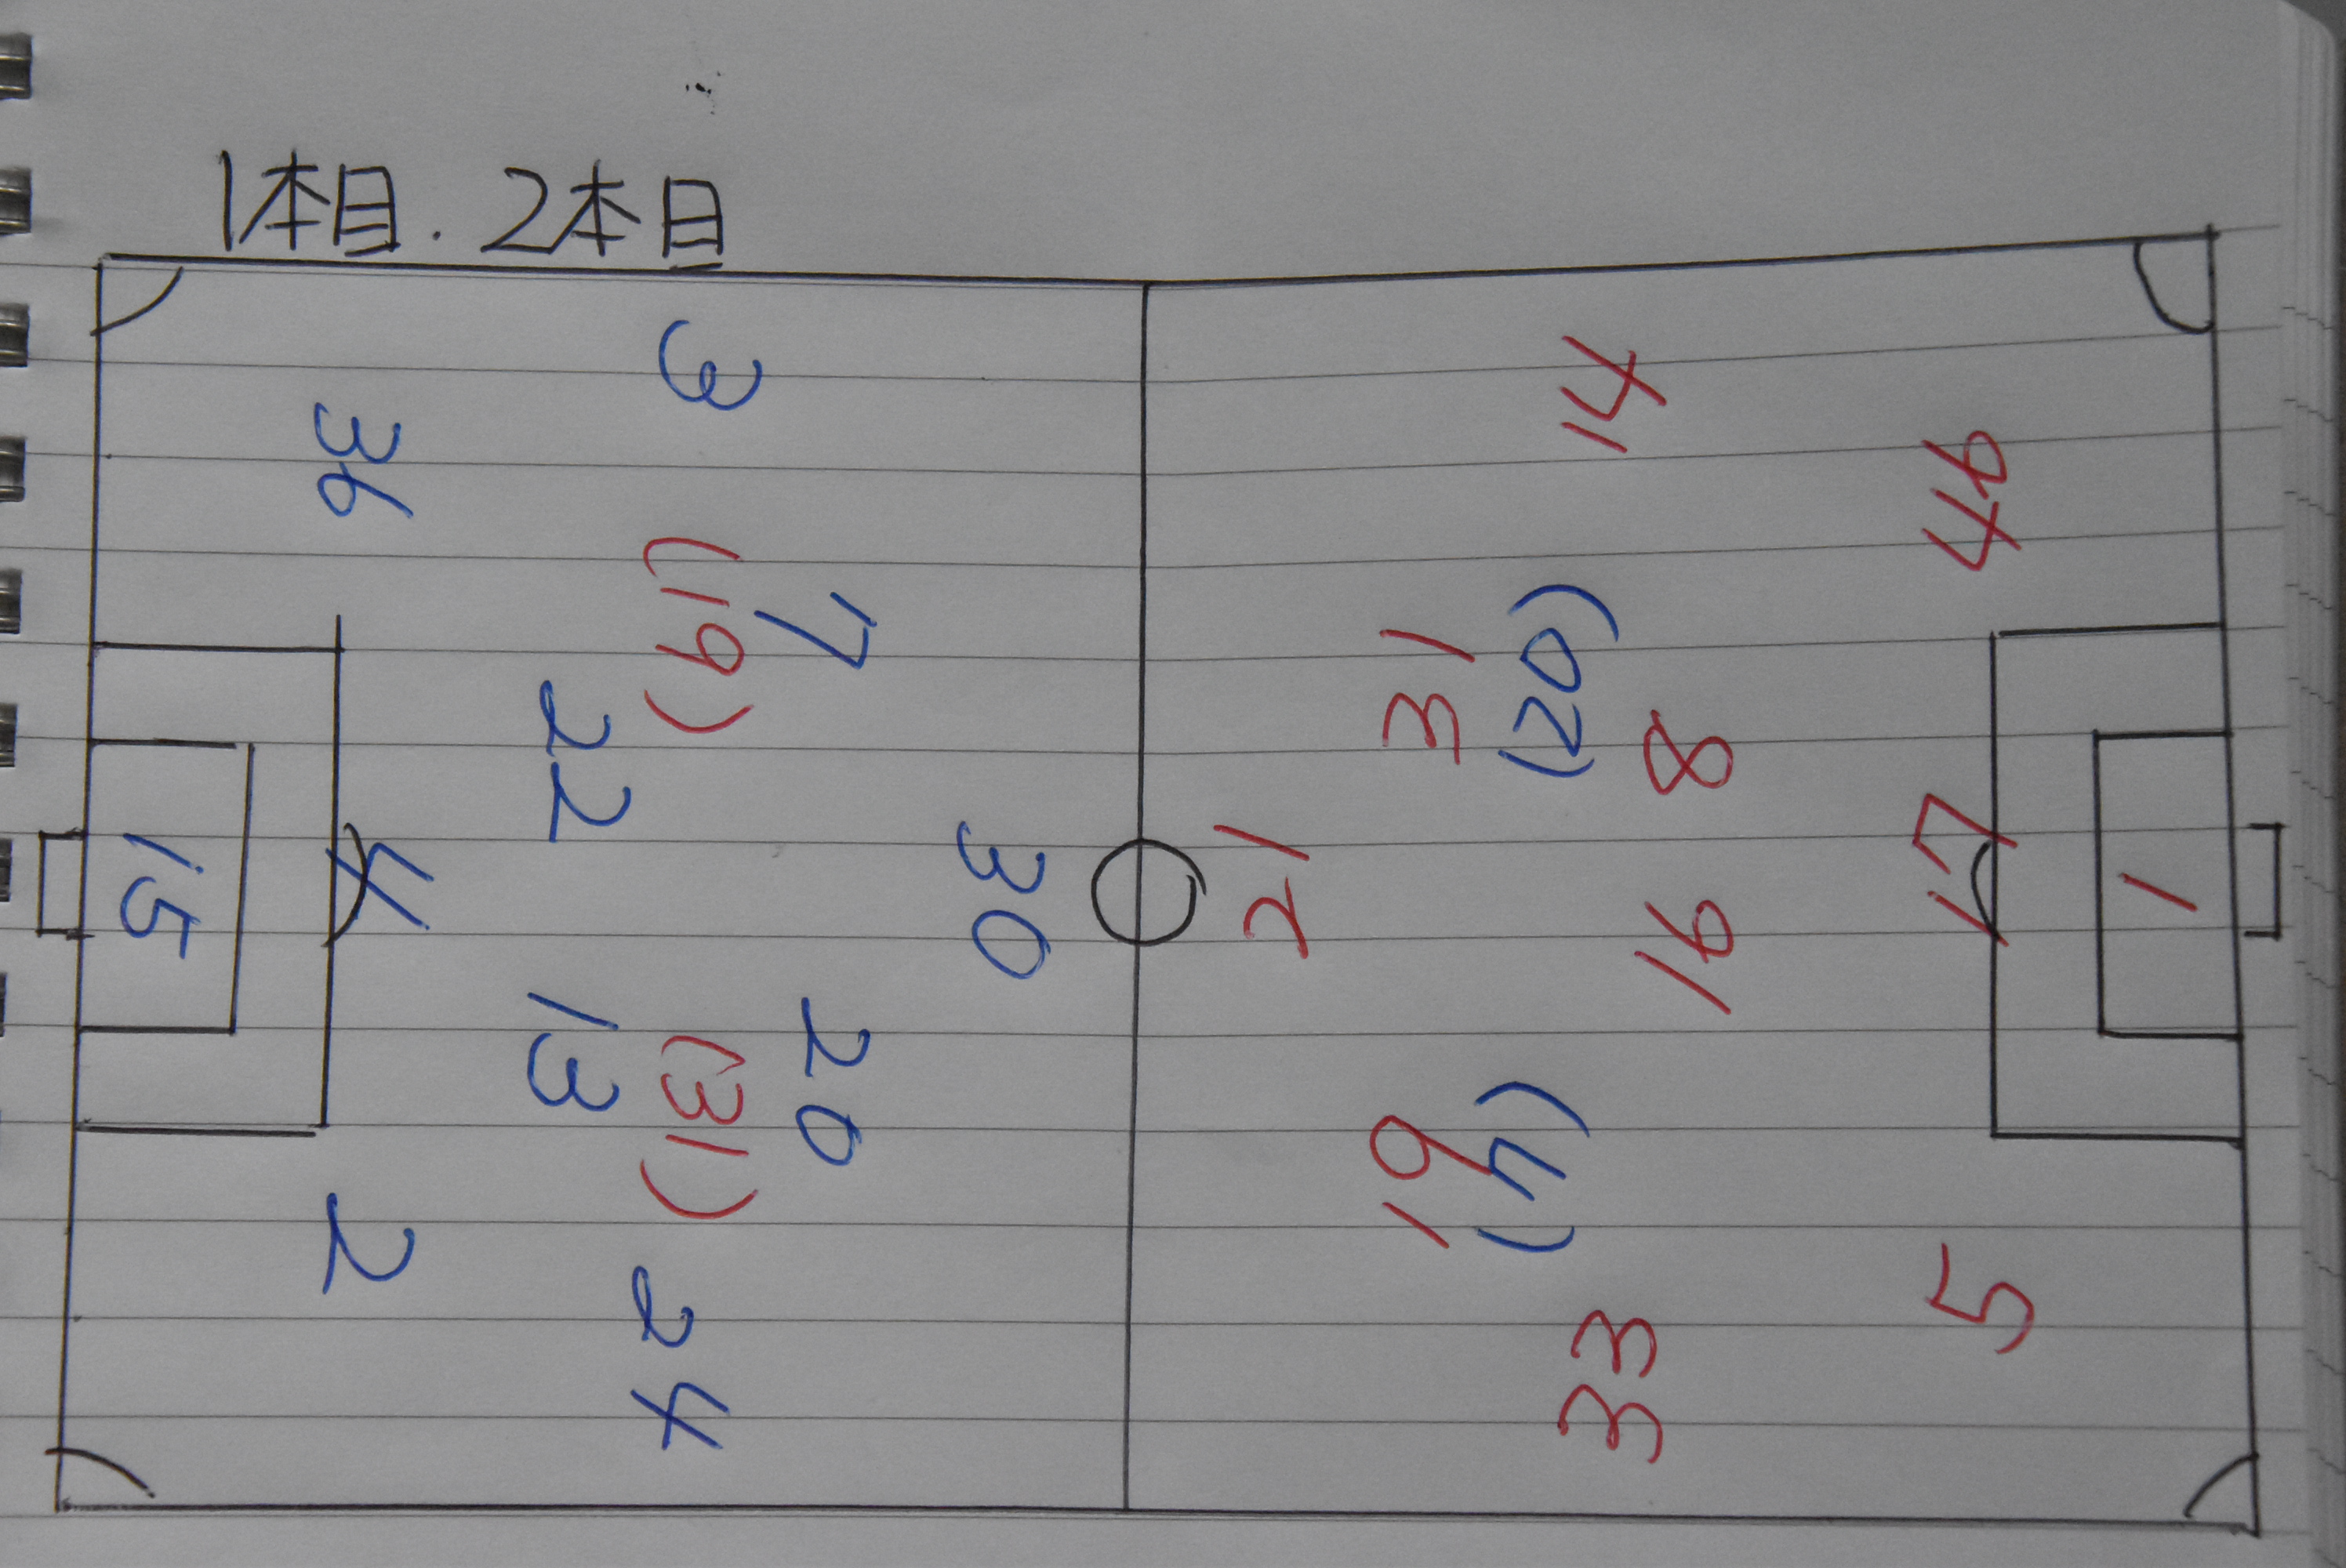 1本目.2本目
3
36
(19)
7
22
15
4
30
13
(31)
20
2
24
14
46
31
(20)
8
21
16
17
1
19
(4)
5
33